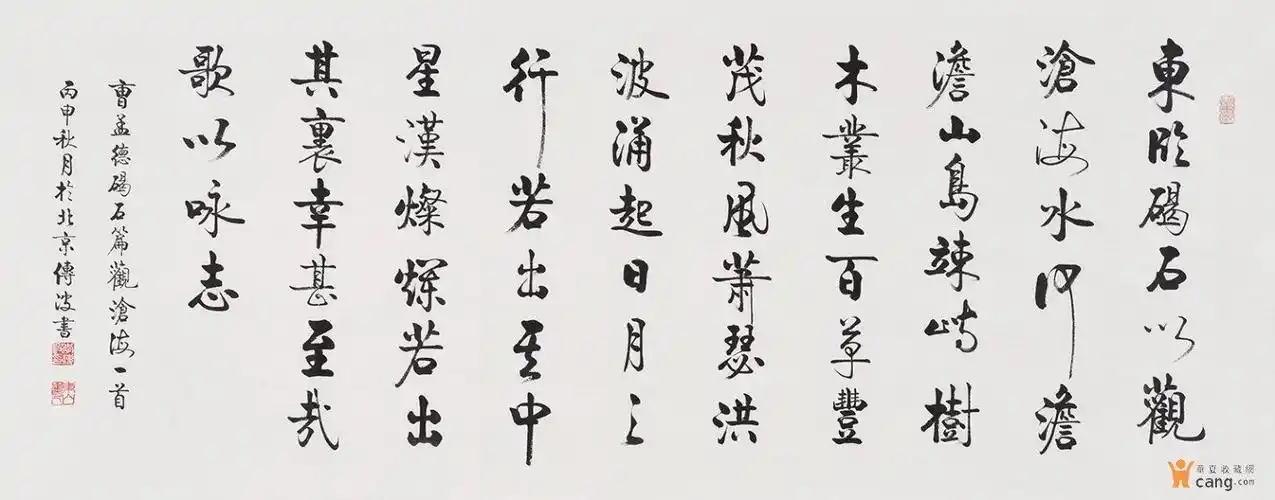 東臨碣石以觀
滄海水何澹
澹山島竦峙樹
木叢生百草豐
茂秋風蕭瑟洪
波涌起日月之
行若出其中
星漢燦爛若出
其裏幸甚至哉
歌以咏志
曹孟德碣石篇觀滄海一首
丙申秋月於北京傳波書
華夏收藏網
cang.com